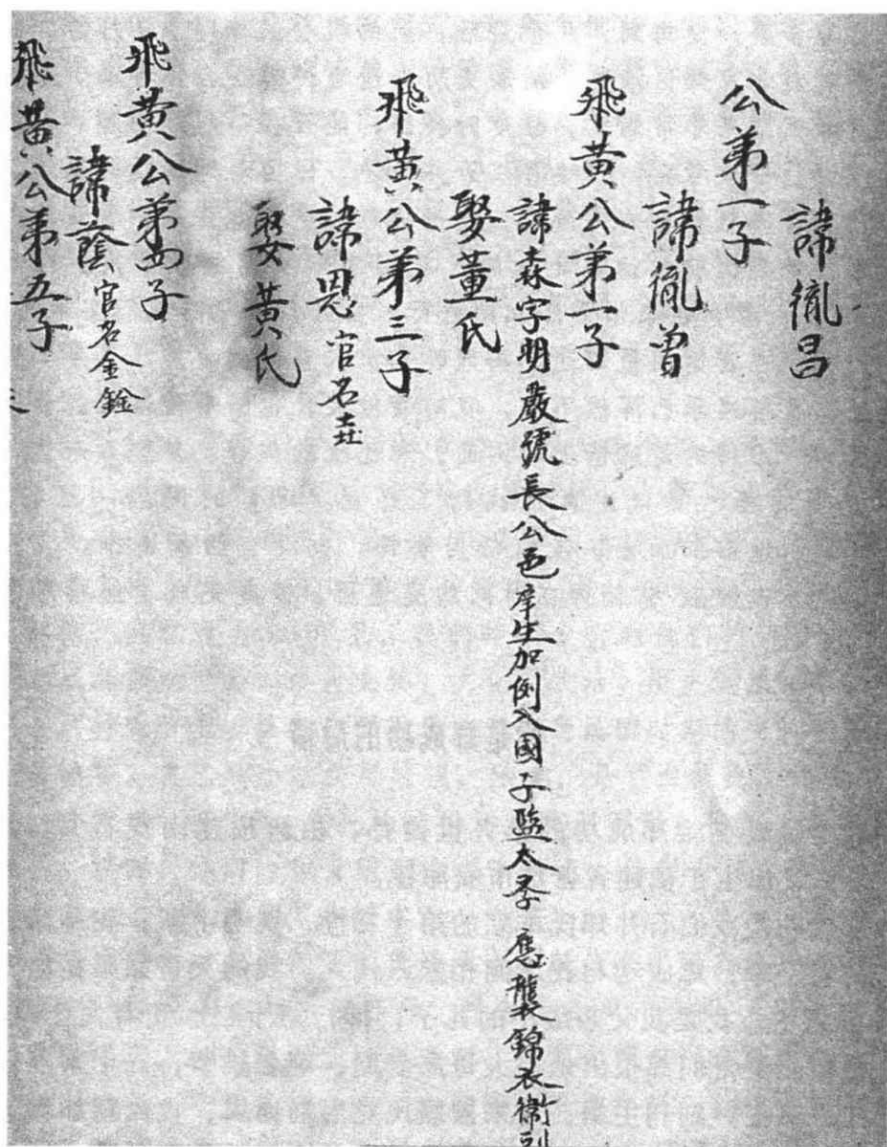 諱胤昌
公第一子
諱胤曾
飛黃公第一子
諱森字明嚴號長公邑庠生加例入國子監太孝 應襲錦衣衛
娶董氏
飛黃公第三子
諱恩官名垚
娶黃氏
飛黃公第四子
諱蔭官名金銓
飛黃公第五子